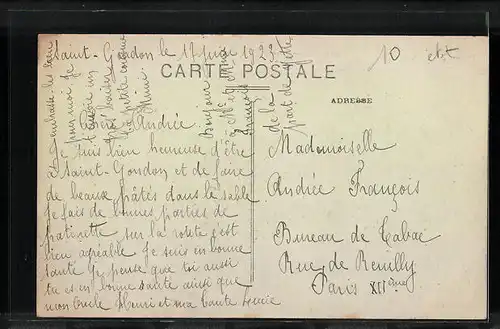 Saint-Gondon le 17 juin 1923
CARTE POSTALE
10
ADRESSE
Chère Andrée
Je suis bien heureuse d'être
à Saint-Gondon et de faire
de beaux pâtés dans le sable
Je fais de bonnes parties de
patinette sur la route c'est
bien agréable Je suis en bonne
santé Je pense que toi aussi
tu es en bonne santé ainsi que
mon oncle Henri et ma tante Lucie
pour moi Je
t'envoie un
gros baiser
ta petite cousine
Bonjour
à Mr et Mme
François
de la
part de
Mademoiselle
Andrée François
Bureau de Tabac
Rue de Reuilly
Paris XIIème